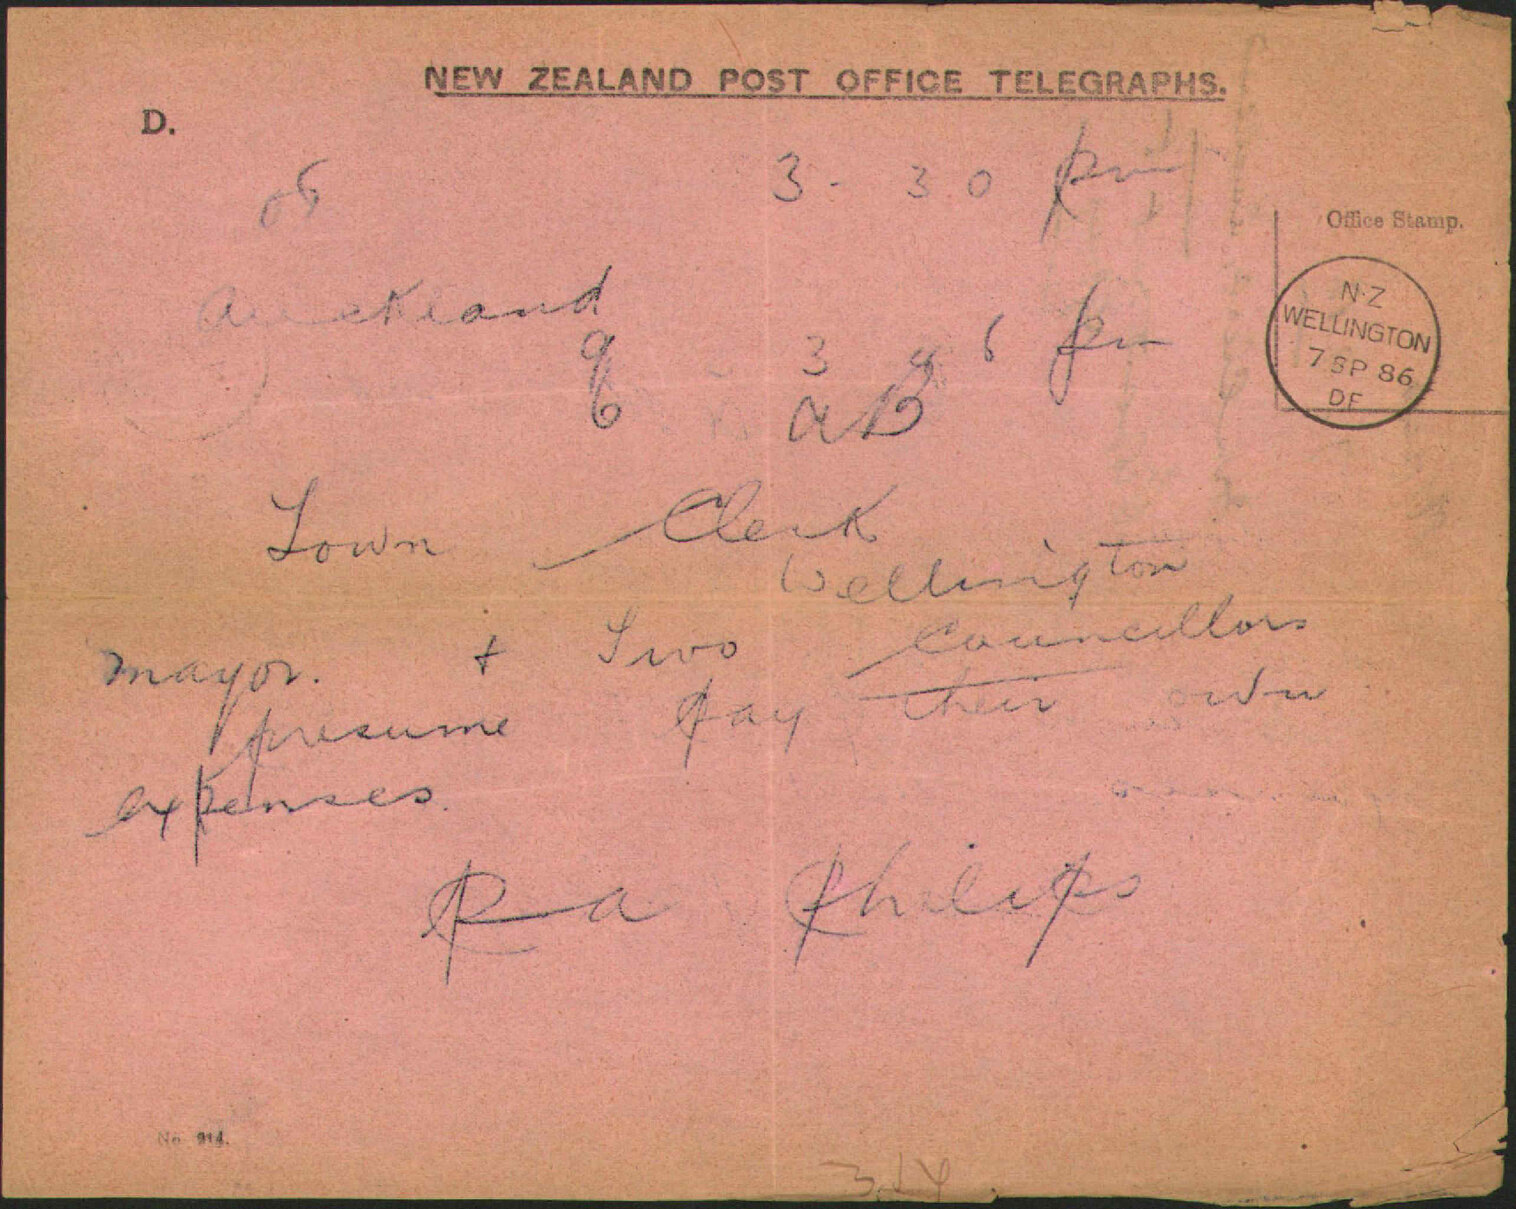 NEW ZEALAND POST OFFICE TELEGRAPHS.
D.
3-30 pm
Office Stamp.
Auckland
N·Z
WELLINGTON
7 SP 86
DF
9 3 46 pm
6 aB
Town Clerk
Wellington
Mayor. + Two Councillors
presume pay their own
expenses.
R a Philips
No. 214.